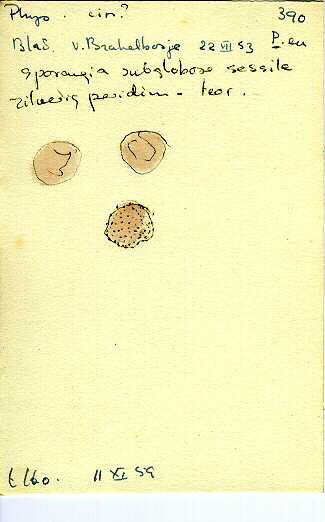 Physo. cin.? 390
Blaš. v. Brakelbosje 22 VII 53 P. en
sporangia subglobose sessile
zilverig peridium - teer.
11 XI 59